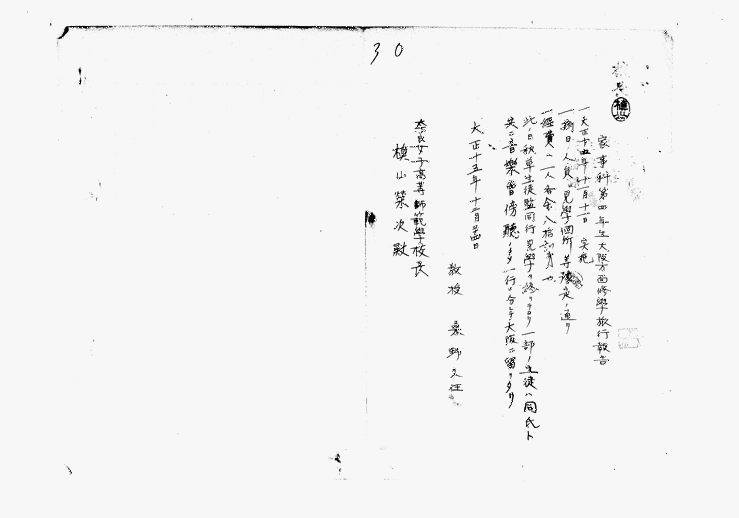 30
家事科第四年生大阪方面修學旅行報告
一、大正十五年十一月十一日 実施
一、期日、人員、見學個所等豫定ノ通リ
一、經費ハ一人各金八拾
此ノ日秋草生徒監同行見學ヲ終リテヨリ一部ノ生徒ハ同氏ト
共ニ音樂會傍聽ノタメ一行ヨリ分レテ大阪ニ留リタリ
大正十五年十一月 日
教授 桑野久任
奈良女子高等師範學校長
槇山榮次殿